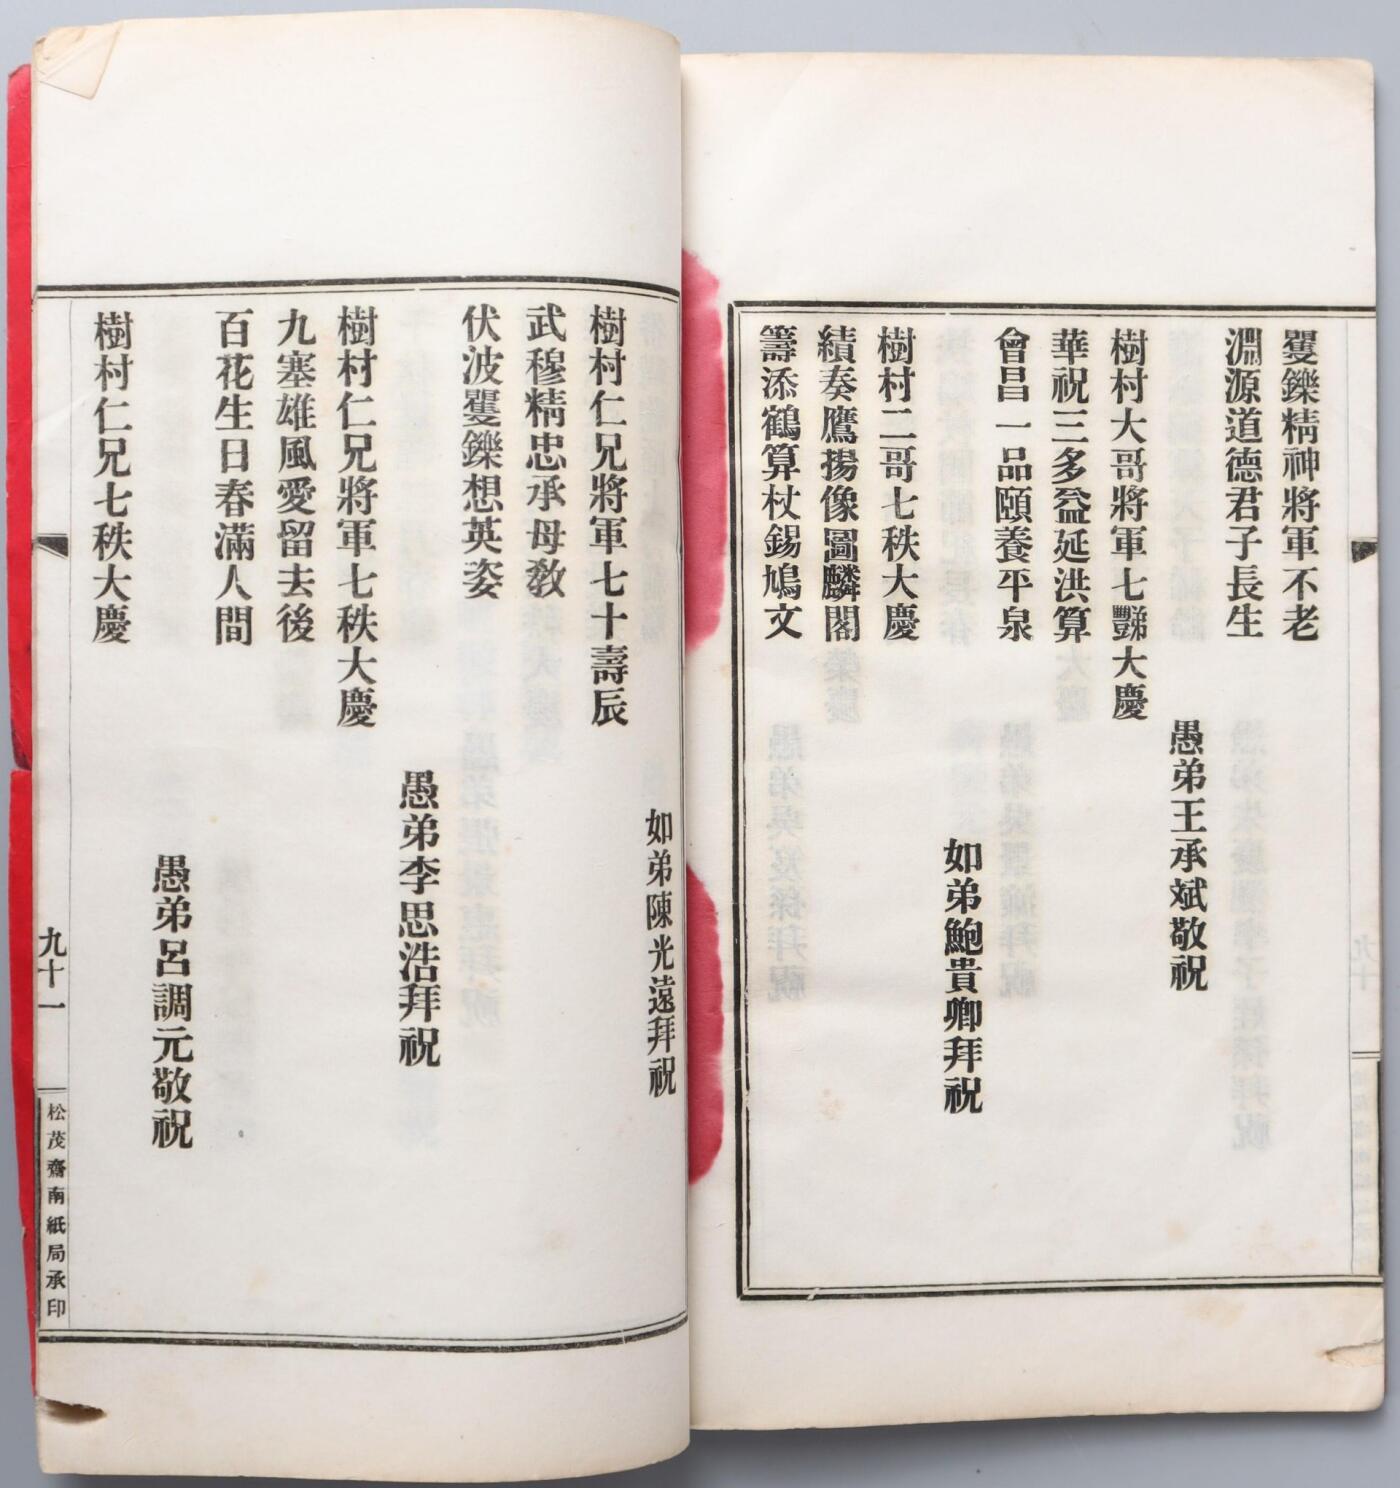 矍鑠精神將軍不老
淵源道德君子長生
愚弟王承斌敬祝
樹村大哥將軍七豑大慶
華祝三多益延洪算
會昌一品頤養平泉
如弟鮑貴卿拜祝
樹村二哥七秩大慶
績奏鷹揚像圖麟閣
籌添鶴算杖錫鳩文
如弟陳光遠拜祝
樹村仁兄將軍七十壽辰
武穆精忠承母敎
伏波矍鑠想英姿
愚弟李思浩拜祝
樹村仁兄將軍七秩大慶
九塞雄風愛留去後
百花生日春滿人間
愚弟呂調元敬祝
樹村仁兄七秩大慶
九十一
松茂齋南紙局承印